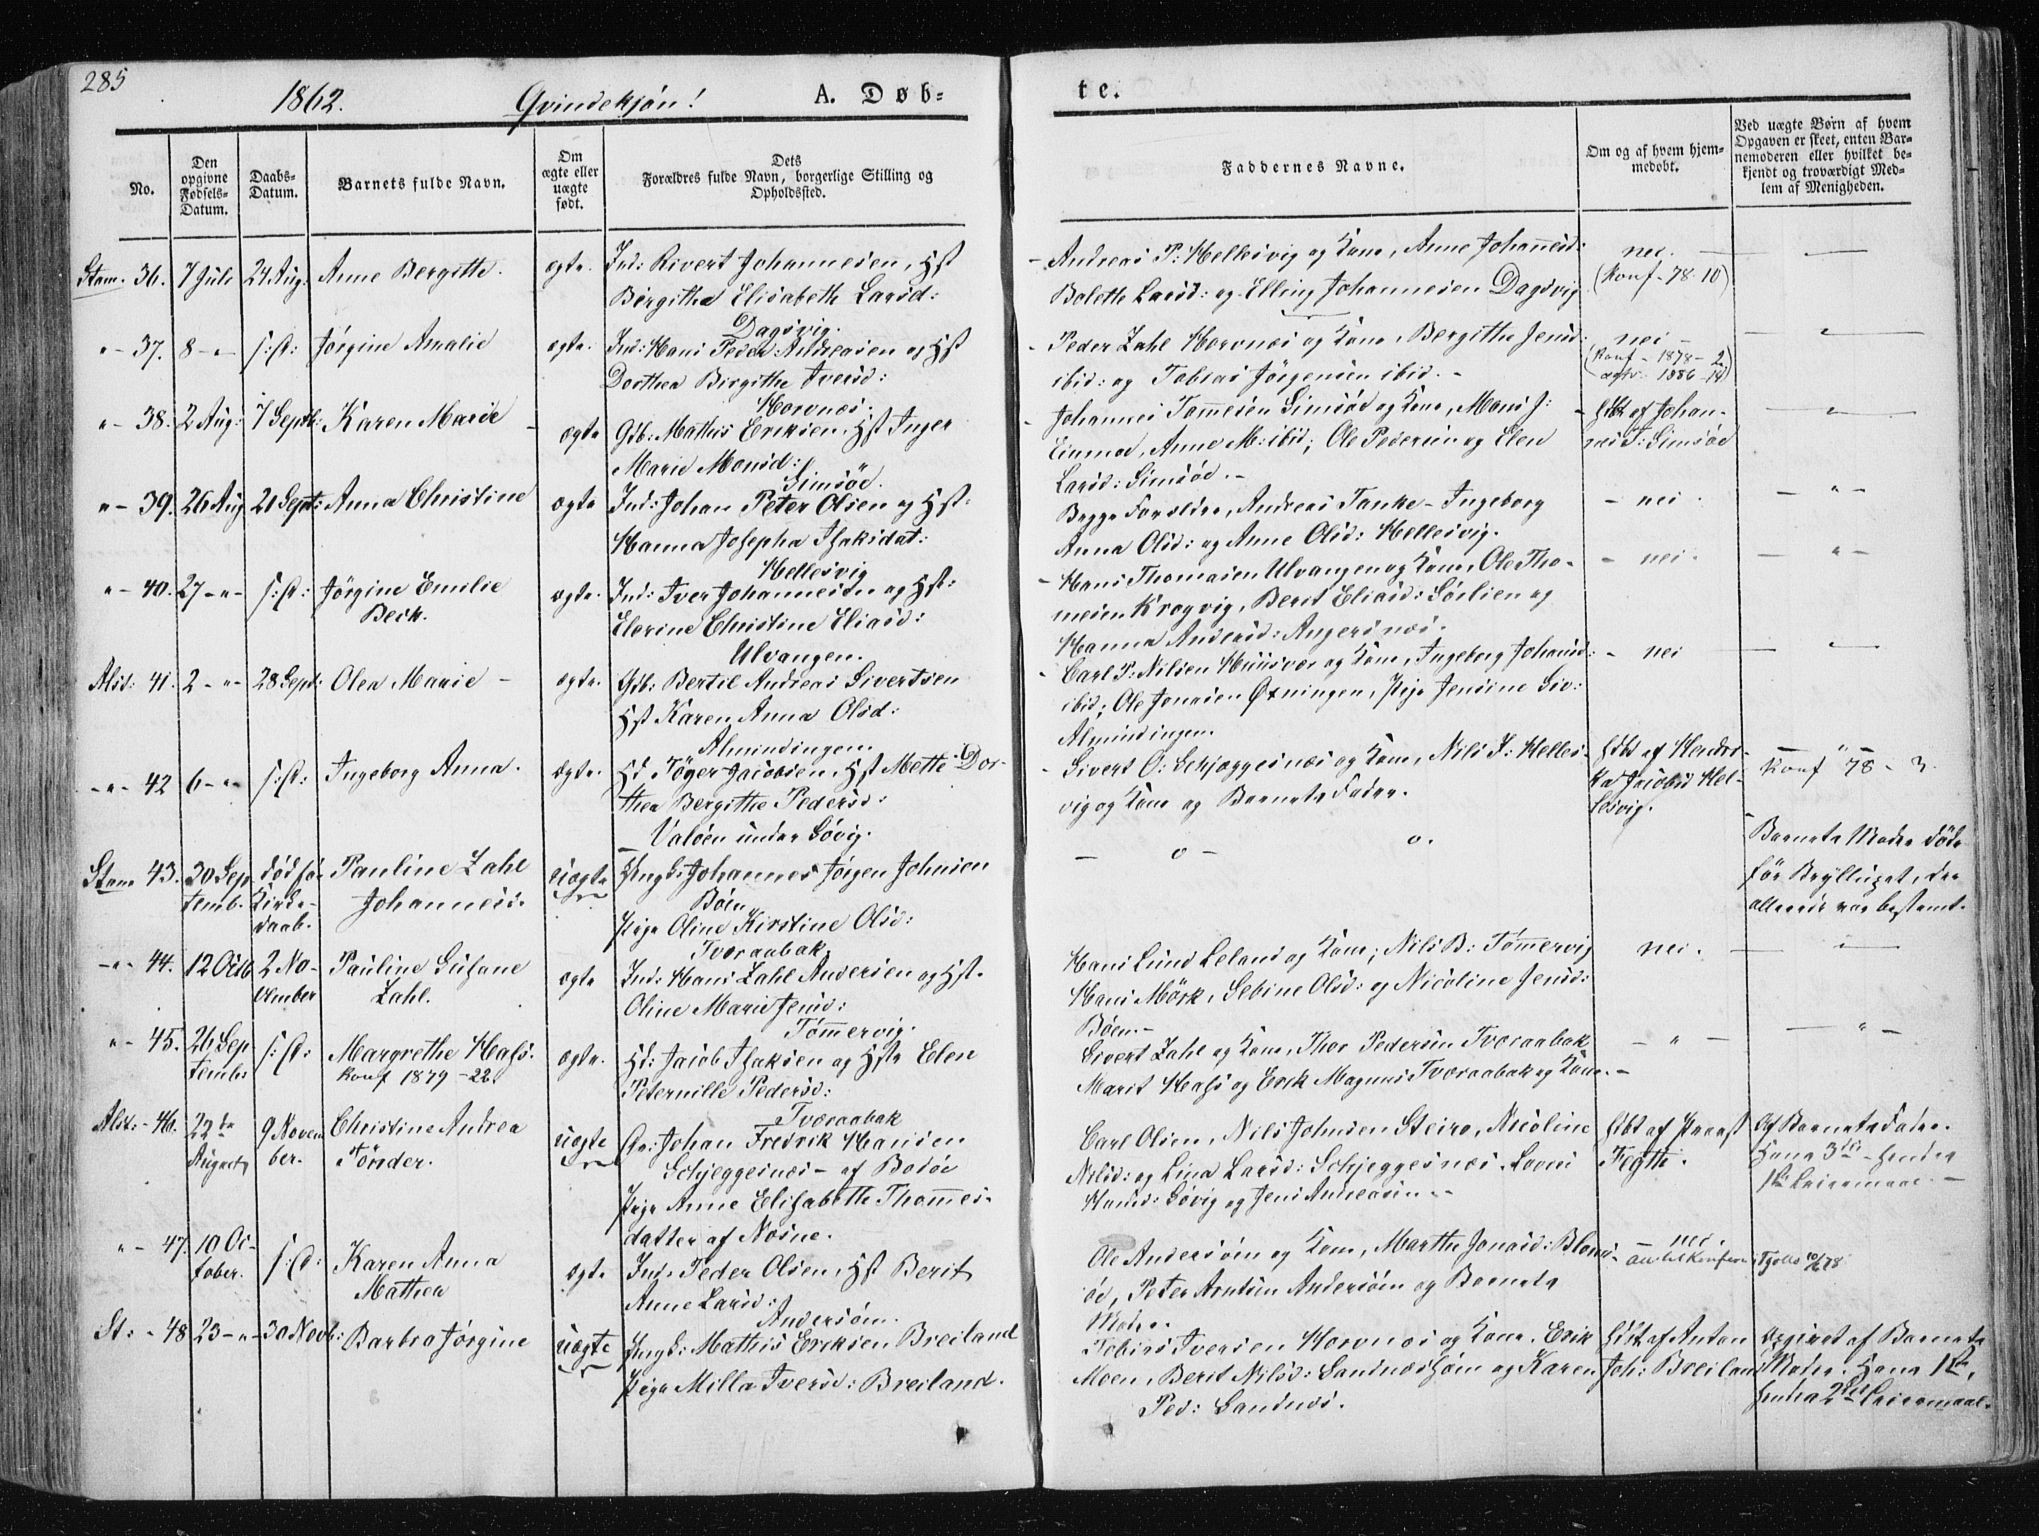 285
1862. Qvindekjön! A. Døb-
te.
No.
Den opgivne Fødsels-Datum.
Daabs-Datum.
Barnets fulde Navn.
Om ægte eller uægte født.
Dets Forældres fulde Navn, borgerlige Stilling og Opholdssted.
Faddernes Navne.
Om og af hvem hjem-medøbt.
Ved uægte Børn af hvem Opgaven er skeet, enten Bar-nemoderen eller hvilket be-kjendt og troværdigt Med-lem af Menigheden.
Stam. 36. 7 Juli 24 Aug: Anne Bergitte. ægte. Ind: Rivert Johannesen, Hst
Birgitha Elisabeth Larsd:
Dagsvig.
Andreas P: Hellesvig og Kone, Anne Johannesd:
Bolette Larsd: og Elling Johannesen Dagsvig
nei.
(Konf - 78 10)
" - 37. 8 - " s: D: Jörgine Amalie ægte. Ind: Hans Peder Andreasen og Hst
Dorthea Birgithe Iversd:
Horvnæs.
Peder Zahl Horvnæs og Kone, Bergithe Jensd:
ibid: og Tobias Jörgensen ibid. -
nei -
(Konf - 1878 - 2
1886 - 14)
" - 38. 2 Aug: 7 Septb: Karen Marie ægte Gdb: Mathis Eriksen, Hst Inger
Marie Monsd:
Simsöe.
Johannes Tommesen Simsöe og Kone, Mons J:
Einmo, Anne M: ibid; Ole Pedersen og Elen
Larsd: Simsöe. -
Hdbt af Johan-
nes T: Simsöe
" - 39. 26 Aug 21 Sept: Anna Christine ægte Ind: Johan Peter Olsen og Hst:
Hanna Josepha Isaksdat:
Hellesvig
Begge Forældre, Andreas Tanke - Ingeborg
Anna Olsd: og Anne Olsd: Hellesvig.
- nei.
" - 40. 27 - " - s: D: Jörgine Emilie
Beck.
ægte. Ind: Iver Johannesen og Hst:
Elerine Christine Eliasd:
Ulvangen.
Hans Thomasen Ulvangen og Kone, Ole Tho-
mesen Krogvig, Berit Eliasd: Sörlien og
Hanna Andersd: Angersnæs.
- nei.
Alst: 41. 2 - " - 28 Sept: Olea Marie - ægte. Gdb: Bertil Andreas Sivertsen
Hst Karen Anna Olsd:
Almindingen.
Carl P: Nilsen Huusvær og Kone, Ingeborg Johansd:
ibid; Ole Jonasen Öxningen, Pige Jensine Siv:
Almindingen.
- nei
- " - 42 6 - " - s: D: Ingeborg Anna. ægte. Hd Töger Jacobsen, Hst Mette Dor-
thea Bergithe Pedersd:
Valöen under Sövig.
Sivert O: Schjeggesnæs og Kone, Nils J: Helles-
vig og Kone og Barnets Fader.
Hdbt af Hendri-
ka Jacobsd Hel-
lesvig.
Konf 78 - 3.
Stam 43. 30 Sep
temb.
död för
Kirke-
daab.
Pauline Zahl
Johannesd.
uægte Ungk: Johannes Jörgen Johnsen
Böen
Pige Oline Kirstine Olsd:
Tværaabak
- o - o.
Barnets Moder döde
för Brylluppet, der
allerede var bestemt.
- " - 44. 12 Octb 2 No-
vember
Pauline Susane
Zahl.
ægte Ind: Hans Zahl Andersen og Hst.
Oline Marie Jensd:
Tömmervig.
Hans Lund Leland og Kone; Nils B: Tömmervig
Hans Mörk, Sebine Olsd: og Nicoline Jensd:
Böen. -
nei.
" - 45. 26 Sep
tembr
s: D: Margrethe Hass.
Konf 1879 - 22.
ægte. Hd: Jacob Isaksen og Hst Elen
Peternille Pedersd:
Tværaabak
Sivert Zahl og Kone, Thor Pedersen Tværaabak
Marit Hass og Erik Magnus Tværaabak og Kone. -
- " -
Alst: - 46. 22de
August
9 Novem
ber.
Christine Andrea
Tönder.
uægte Johan Fredrik Hansen
Schjeggesnæs - af Bodöe
Pige Anne Elisabeth Thommes-
datter af Næsne.
Carl Olsen, Nils Johnsen Steiro, Nicoline
Nilsd: og Lina Larsd: Schjeggesnæs. Lovise
Hansd: Sövig og Jens Andreasen -
Hdbt af Provst
Fygthe.
Af Barnets Fader.
Hans 3die - Hendes
1ste Leiermaal. -
" - 47. 10 Oc-
tober.
s: D: Karen Anna
Mathea
ægte Ind: Peder Olsen, Hst Berit
Anne Larsd:
Andersöen.
Ole Andersöen og Kone, Marthe Jonasd: Bloms-
öe, Peter Arntsen Andersöen og Barnets
Moder.
nei.
St: - 48 23 - " - 30 Novb: Barbro Jörgine uægte Ungk: Mathis Eriksen Breiland
Pige Milla Iversd: Breiland.
Tobias Iversen Horvnæs og Kone. Erik
Moen, Berit Nilsd: Sandnæshjem og Karen
Ped: Sandnæs.
Hdbt af Anton
Joh: Breiland
Opgivet af Barnets
Moder. Hans 1ste,
hendes 2det Leiermaal.